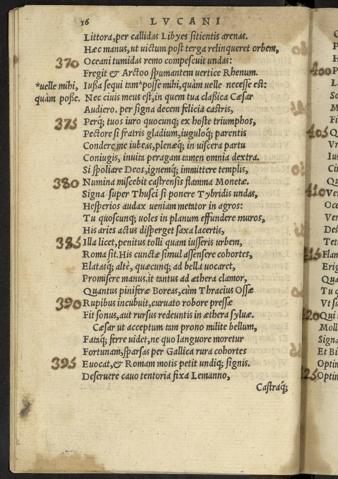 16 LVCANI
Littora, per callidas Libyes sitientis arenas.
Hæc manus, ut uictum post terga relinqueret orbem,
370 Oceani tumidas remo compescuit undas:
Fregit & Arctoo spumantem uertice Rhenum.
*uelle mihi, Iussa sequi tam *posse mihi, quàm uelle necesse est:
quàm posse. Nec ciuis meus est, in quem tua classica Cæsar
Audiero. per signa decem felicia castris,
375 Perq; tuos iuro quocunq; ex hoste triumphos,
Pectore si fratris gladium, iuguloq; parentis
Condere me iubeas, plenæq; in uiscera partu
Coniugis, inuita peragam tamen omnia dextra.
Si spoliare Deos, ignemq; immittere templis,
380 Numina miscebit castrensis flamma Monetæ.
Signa super Thusci si ponere Tybridis undas,
Hesperios audax ueniam metator in agros:
Tu quoscunq; uoles in planum effundere muros,
His aries actus disperget saxa lacertis,
385 Illa licet, penitus tolli quam iusseris urbem,
Roma sit. His cunctæ simul assensere cohortes,
Elatasq; altè, quæcunq; ad bella uocaret,
Promisere manus. it tantus ad æthera clamor,
Quantus piniferæ Boreas, cùm Thracius Ossæ
390 Rupibus incubuit, curuato robore pressæ
Fit sonus, aut rursus redeuntis in æthera syluæ.
Cæsar ut acceptum tam prono milite bellum,
Fataq; ferre uidet, ne quo languore moretur
Fortunam, sparsas per Gallica rura cohortes
395 Euocat, & Romam motis petit undiq; signis.
Deseruere cauo tentoria fixa Lemanno,
Castraq;
400
405
410